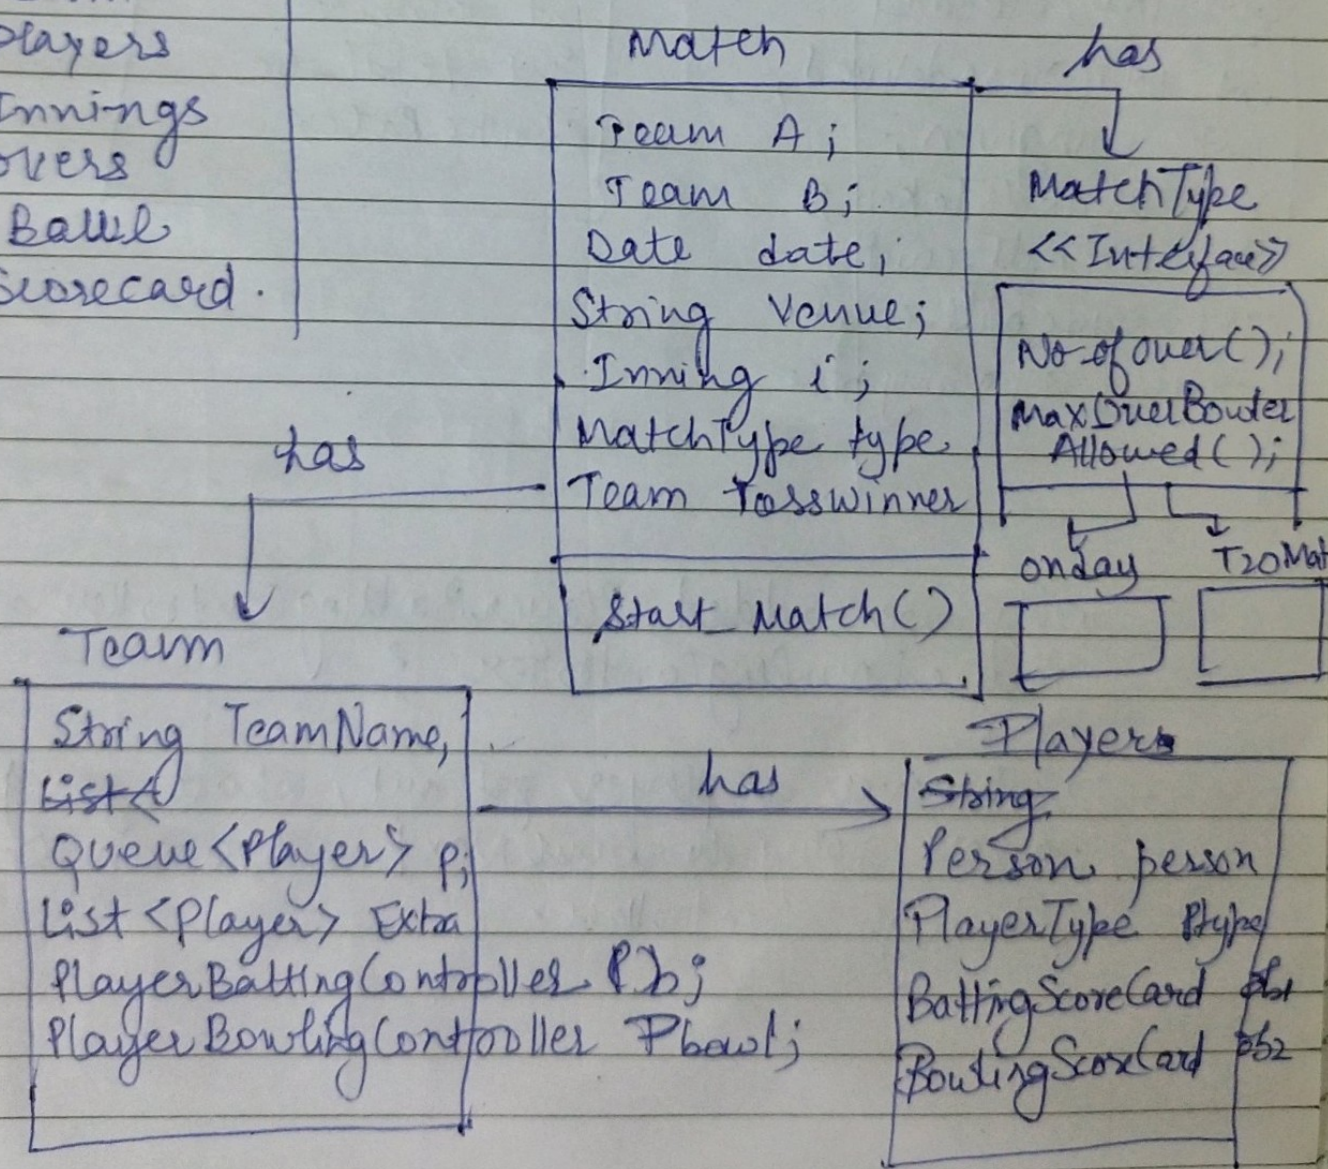 Players
Innings
overs
Balll
Scorecard.
Match
has
Team A;
Team B;
Date date;
String Venue;
Inning i;
MatchType type
Team TossWinner
Start_Match()
MatchType
<<Interface>>
No-of over();
MaxOverBowler
Allowed();
onday
T20Mat
has
Team
String TeamName,
List<
Queue<Player> p;
List<Player> Extra
PlayerBattingController Pb;
PlayerBowlingController Pbowl;
has
Player
String
Person person
PlayerType Ptype
BattingScoreCard
BowlingScoreCard